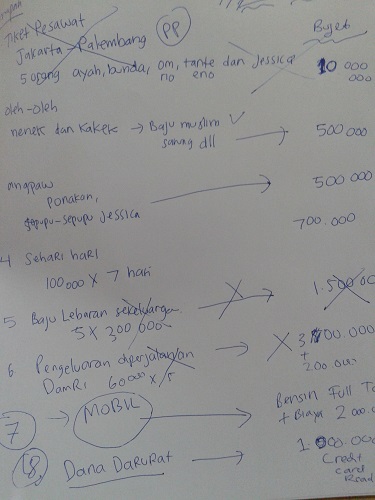 Tiket Pesawat
PP
Budget
Jakarta - Palembang
5 orang ayah, bunda, om, tante dan Jessica
no eno
10 000 000
oleh-oleh
nenek dan kakek → Baju muslim ✓
sarung dll
500 000
angpaw
ponakan,
sepupu-sepupu Jessica
500 000
700.000
4 Sehari hari
100.000 X 7 hari
5 Baju Lebaran sekeluarga
5 X 300 000
1.500 00
6 Pengeluaran diperjalanan
DAMRI 60000 x 5
+
200.000
7 → MOBIL
Bensin Full
+ Biaya 2 000.0
8. Dana Darurat
Credit
card